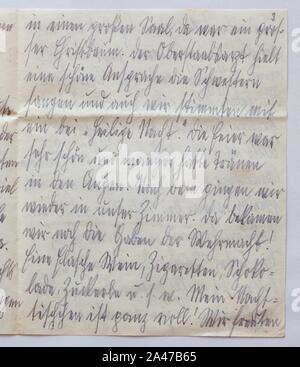 3
in einen großen Saal, da war ein gros-
ser Christbaum. der Oberstabsarzt hielt
eine schöne Ansprache die Schwestern
sangen und auch wir stimmten mit
ein bei „Heilige Nacht. Die Feier war
sehr schön und mancher hatte Tränen
in den Augen. Nach dem gingen wir
wieder in unser Zimmer. Da bekamen
wir noch die Gaben der Wehrmacht!
Eine Flasche Wein, Zigaretten, Schoko-
lade, Zuckerle u. s. w. Mein Nacht-
tischchen ist ganz voll. Wir freuten
alamy
Image ID: 2A47B65
www.alamy.com